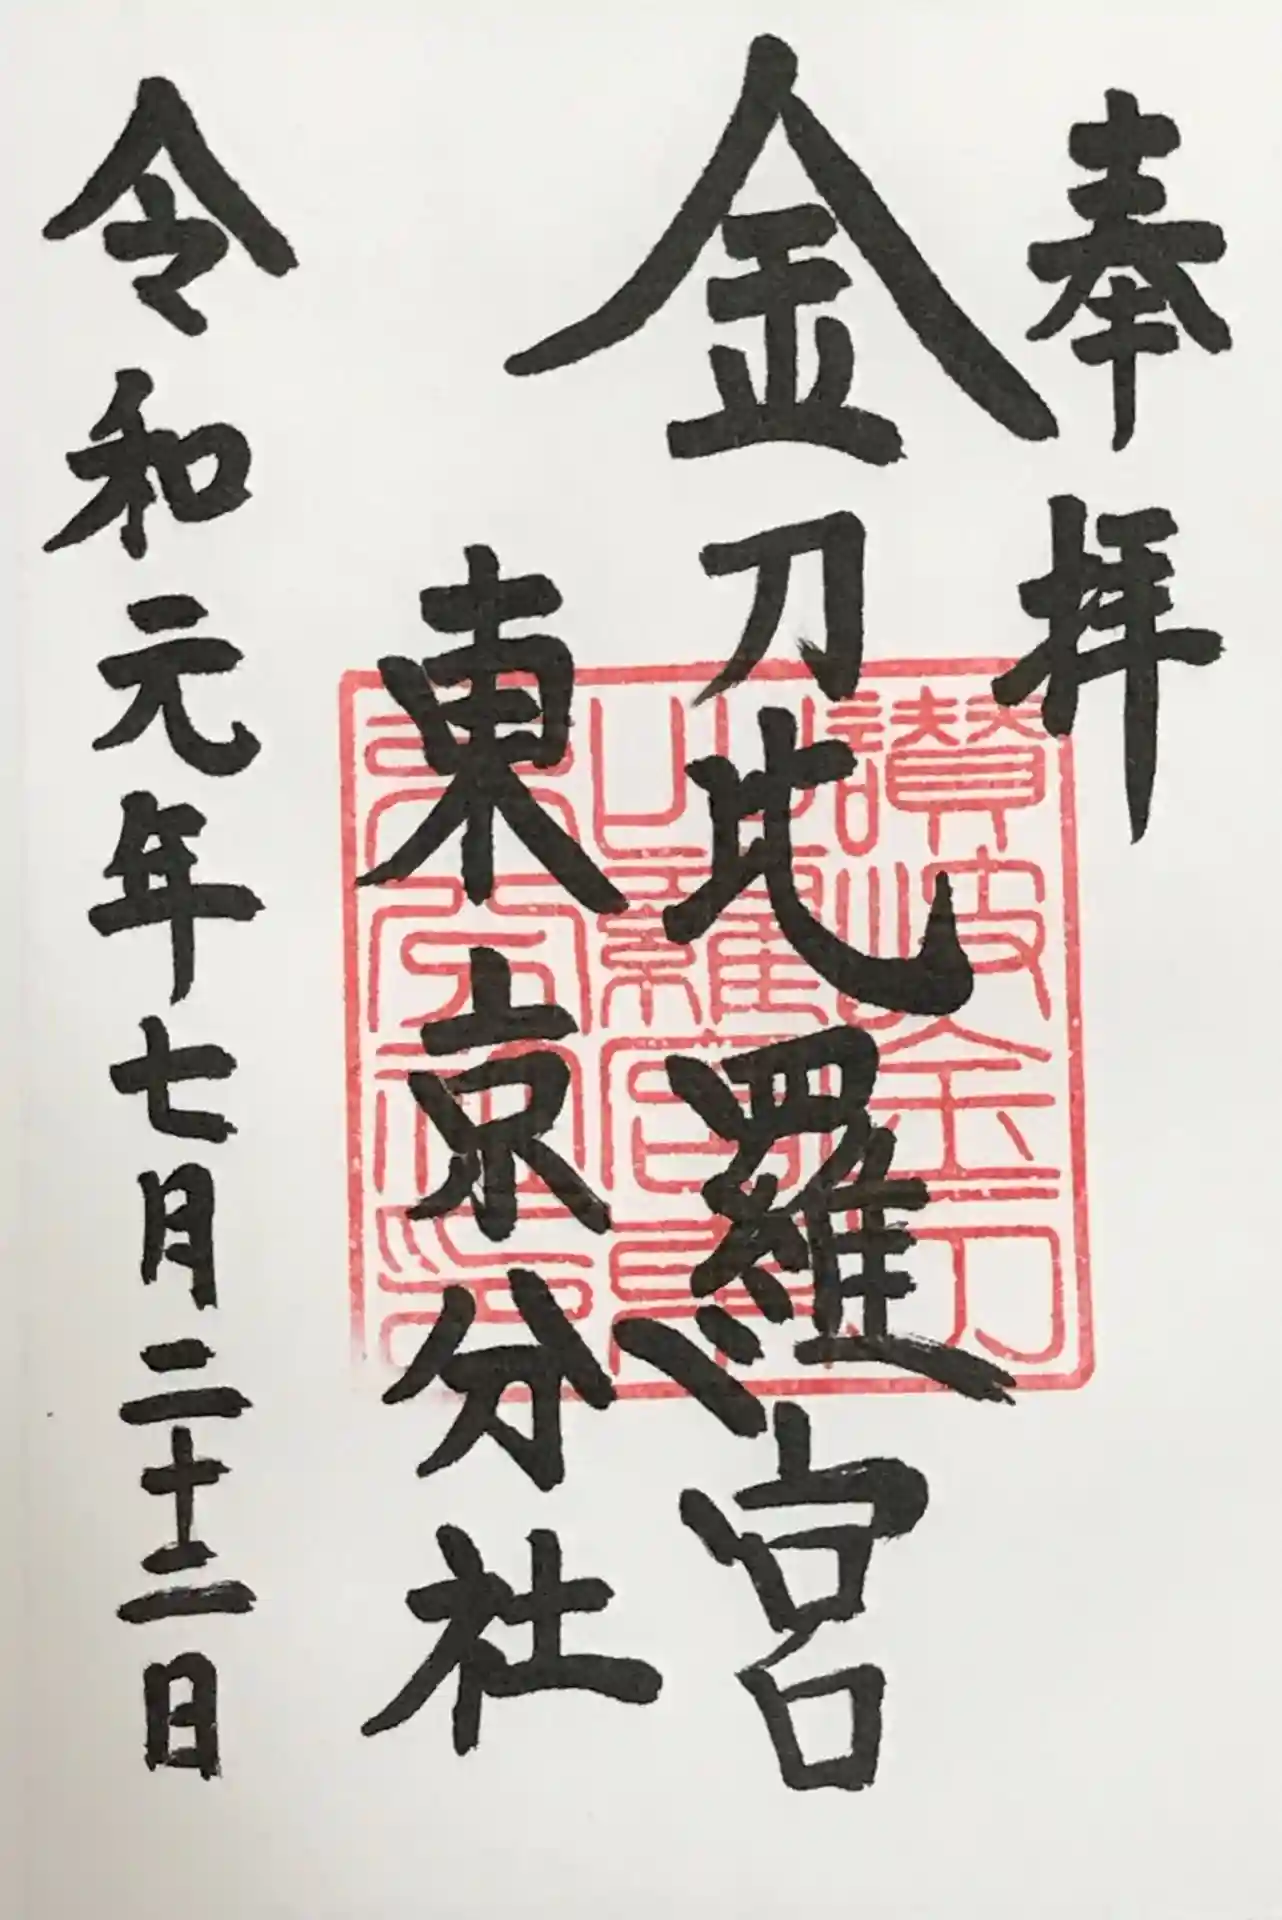 奉拝
金刀比羅宮
東京分社
令和元年七月二十二日
讃岐金刀
比羅宮東
京分社印